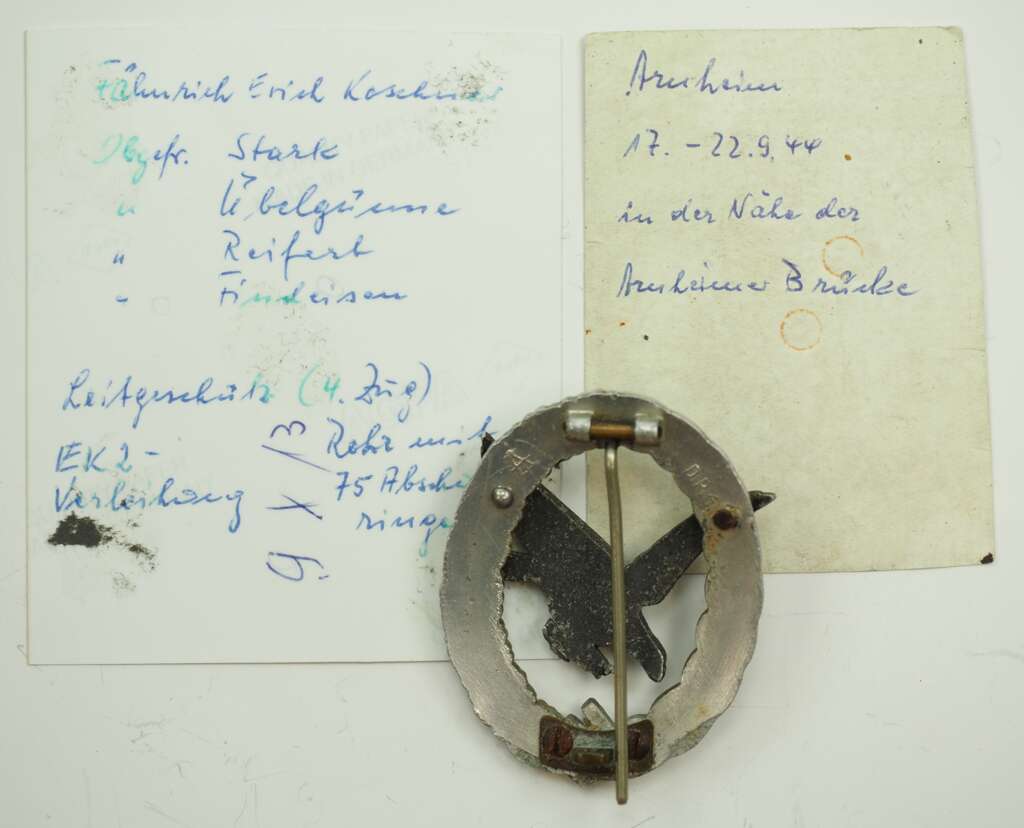 Fähnrich Erich
Obgefr. Stark
" Übelgünne
" Reifert
" Findeisen
Leitgeschütz (4. Zug)
EK2-
Verleihung
Rohr mit
75 Abschu
ringe
9. X /B
Arnheim
17. - 22.9.44
in der Nähe der
Arnheimer Brücke